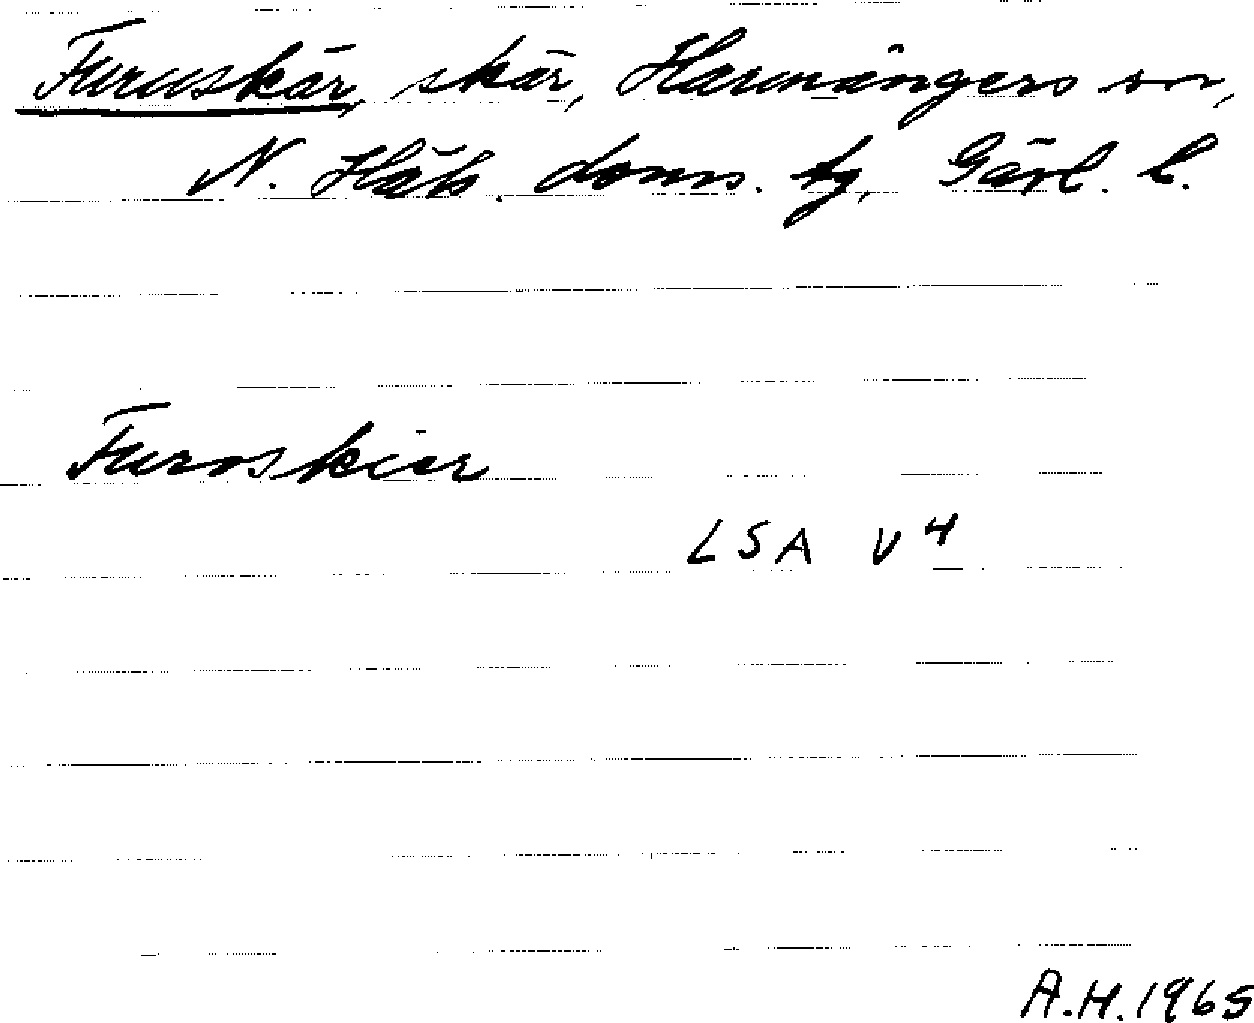 Furuskär, skär, Harmångers sn,
N. Häls. doms. tg, Gävl. l.
Furoskiär
LSA V 4
A.H. 1965